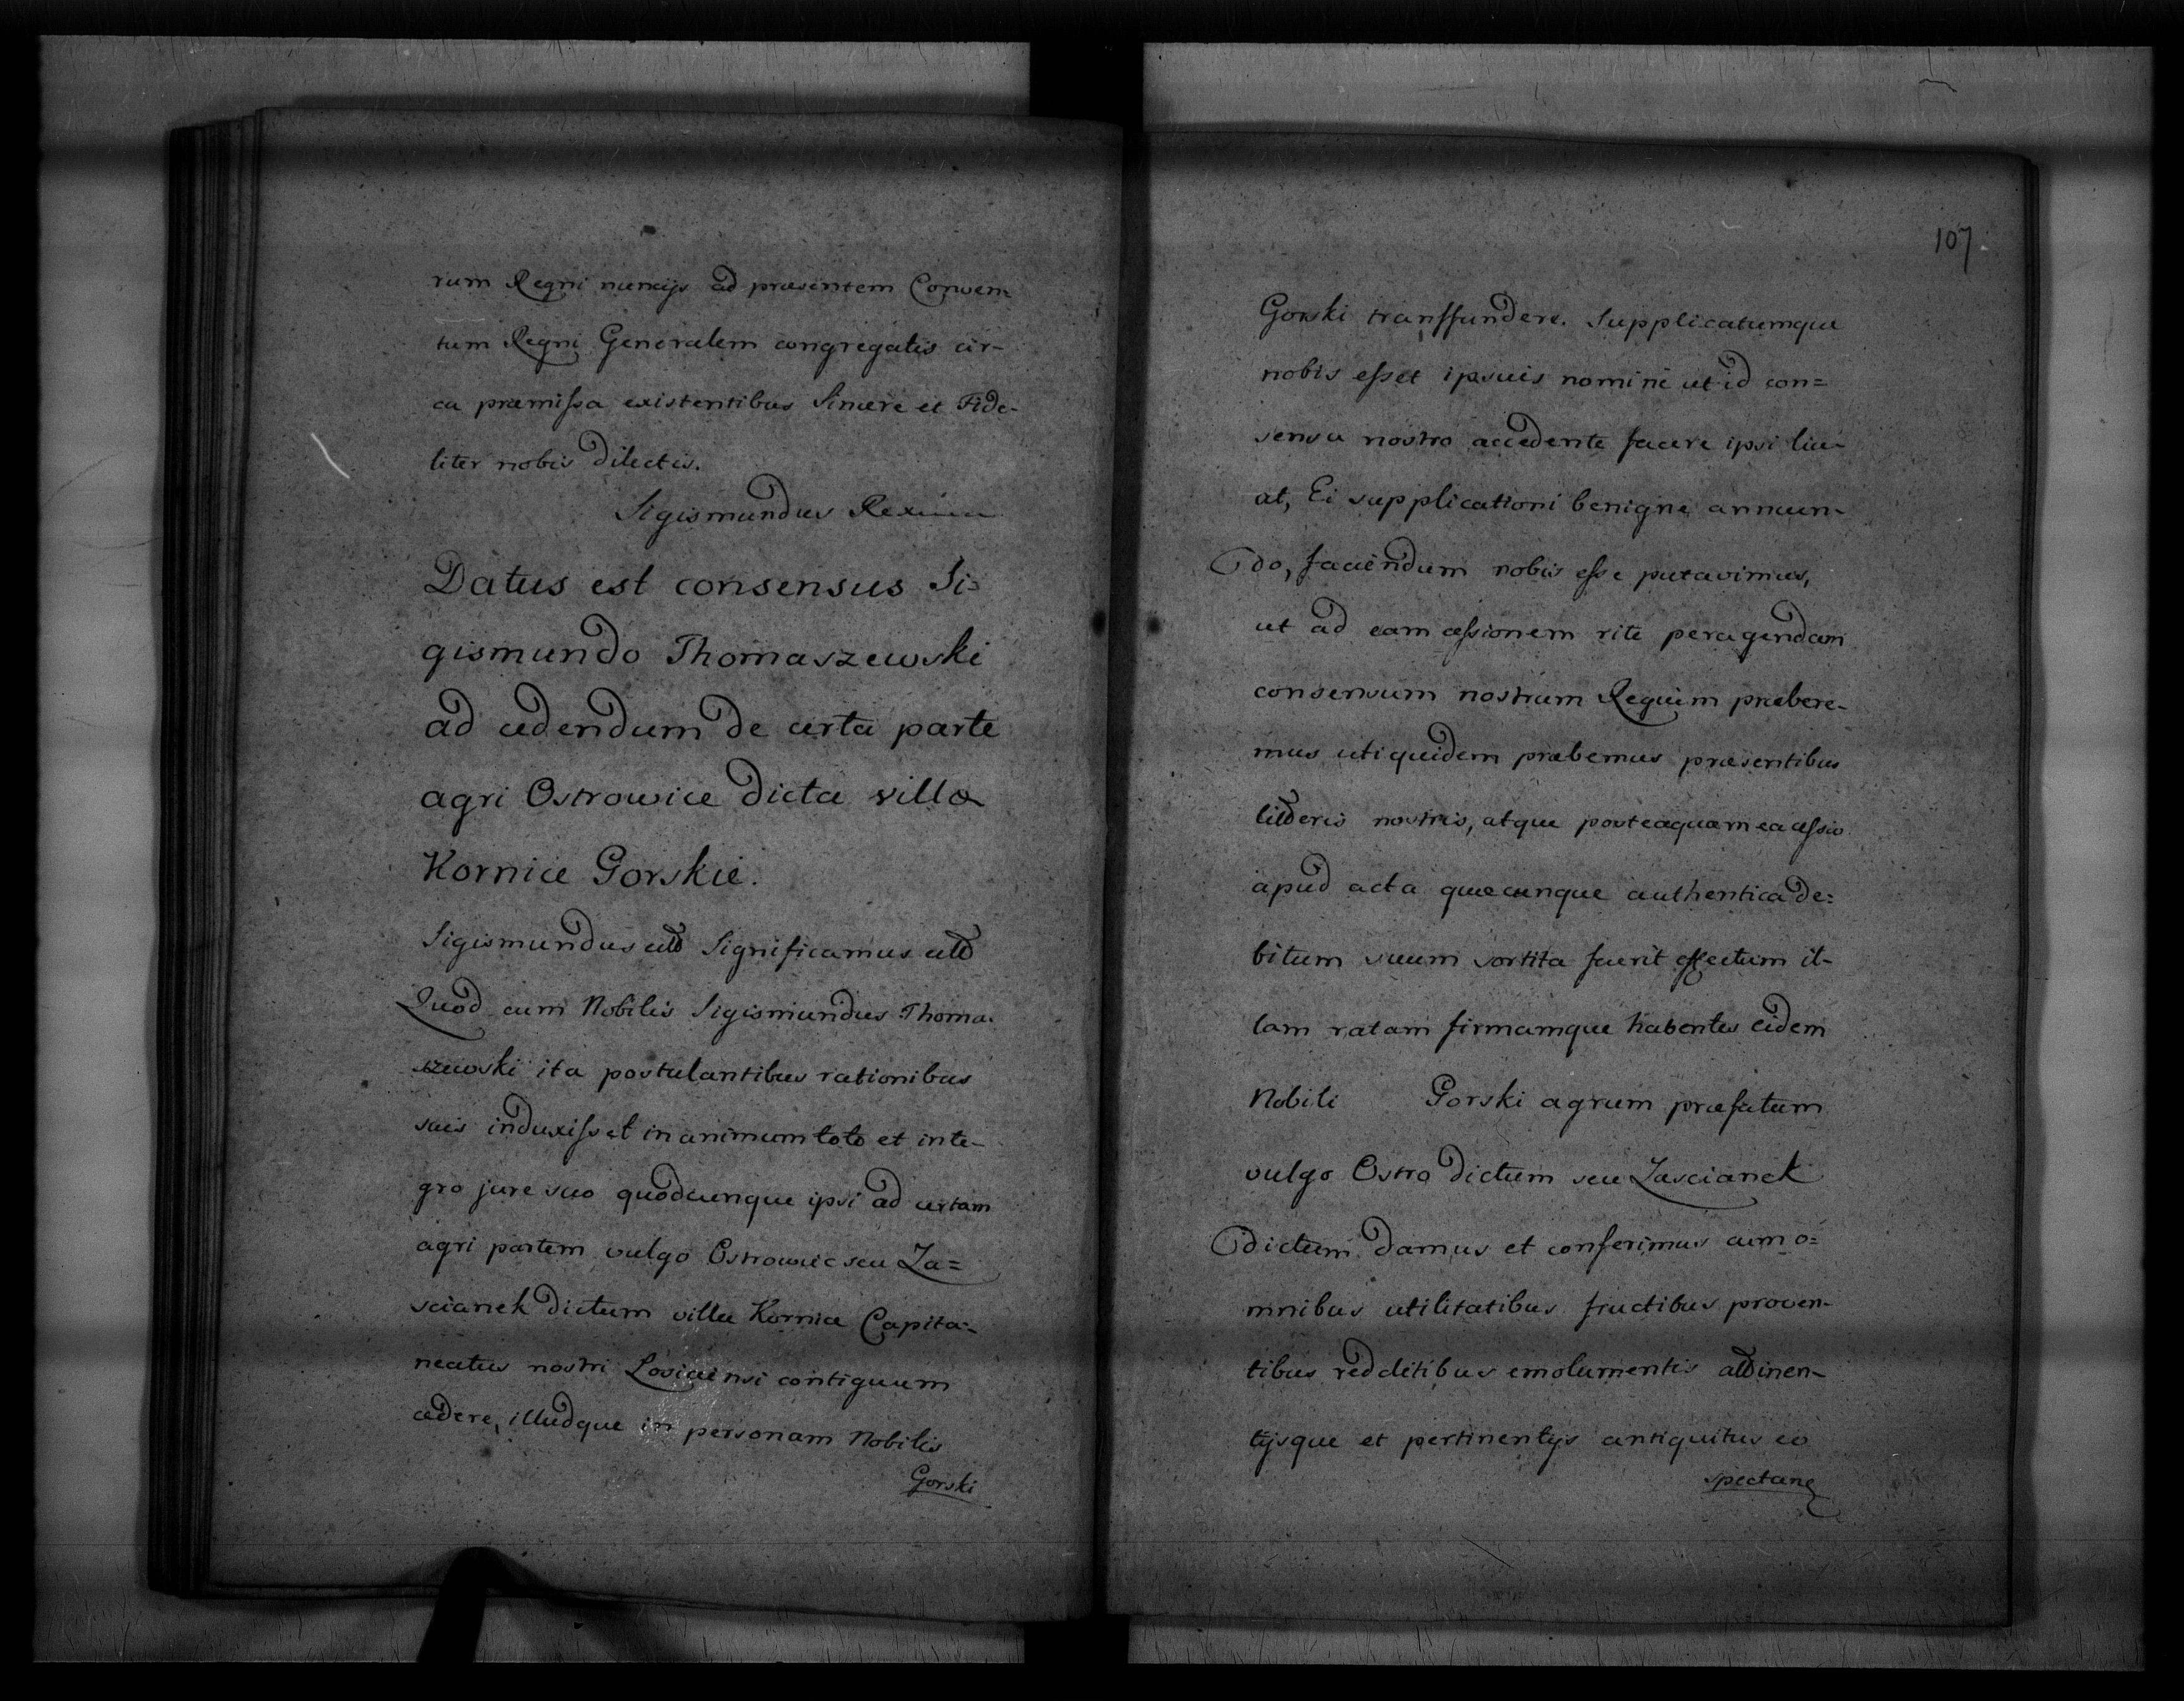 rum Regni nuncijs ad præsentem Conven=
tum Regni Generalem congregatis cir-
ca præmissa existentibus Sincere et Fide-
liter nobis dilectis.
Sigismundus Rex
Datus est consensus Si=
gismundo Thomaszewski
ad cedendum de certa parte
agri Ostrowice dicta villæ
Kornice Gorskie.
Sigismundus ettd Significamus ettd
Quod cum Nobilis Sigismundus Thoma-
szewski ita postulantibus rationibus
suis induxisset in animum toto et inte-
gro jure suo quodcunque ipsi ad certam
agri partem vulgo Ostrowie seu Za=
scianek dictum villæ Kornice Capita-
neatus nostri Losicensi contiguum
cedere, illudque in personam Nobilis
Gorski
107.
Gorski transfundere. Supplicatumque
nobis esset ipsuis nomine ut id con=
sensu nostro accedente facere ipsi lice-
at, Ei supplicationi benigne annuen-
do, faciendum nobis esse putavimus,
ut ad eam cessionem rite peragendam
consensum nostrum Regium præbere-
mus uti quidem præbemus præsentibus
litteris nostris, atque posteaquam ea cessio
apud acta quæcunque authentica de=
bitum suum sortita fuerit effectum il-
lam ratam firmamque habentes eidem
Nobili Gorski agrum præfatum
vulgo Ostro dictum seu Zascianek
dictum damus et conferimus cum o=
mnibus utilitatibus fructibus proven-
tibus redditibus emolumentis attinen-
tijsque et pertinentijs antiquitus eo
spectan